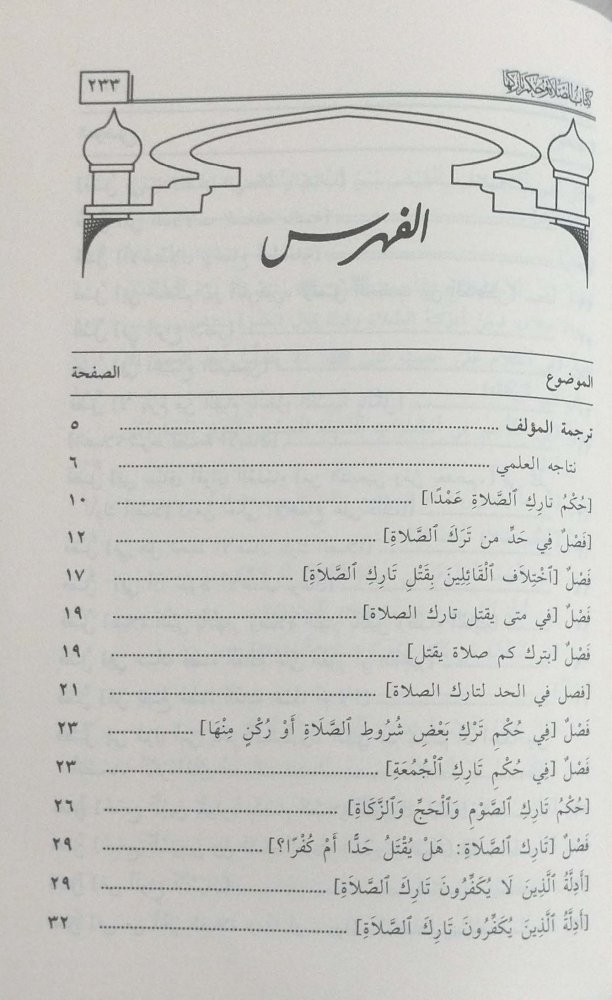 كتاب الصلاة وحكم تاركها
٢٣٣
الفهرس
الموضوع الصفحة
ترجمة المؤلف ٥
نتاجه العلمي ٦
[حُكْمُ تارِكِ ٱلصَّلاةِ عَمْدًا] ١٠
[فَصْلٌ فِي حَدِّ من تَرَكَ ٱلصَّلَاةِ] ١٢
فَصْلٌ [ٱخْتِلَاَف ٱلْقَائِلِينَ بِقَتْلِ تَارِكِ ٱلصَّلَاةِ] ١٧
فَصْلٌ [في متى يقتل تارك الصلاة] ١٩
فَصْلٌ [بترك كم صلاة يقتل] ١٩
[فصل في الحد لتارك الصلاة] ٢١
فَصْلٌ [فِي حُكْمِ تَرْكِ بَعْضِ شُرُوطِ ٱلصَّلَاةِ أَوْ رُكْنٍ مِنْهَا] ٢٣
فَصْلٌ [فِي حُكْمِ تَارِكِ ٱلْجُمُعَةِ] ٢٣
[حُكْمُ تَارِكِ ٱلصَّوْمِ وَٱلْحَجِّ وَٱلزَّكَاةِ] ٢٦
فَصْلٌ [تَارِكِ ٱلصَّلَاةِ: هَلْ يُقْتَلُ حَدًّا أَمْ كُفْرًا؟] ٢٩
[أَدِلَّةُ ٱلَّذِينَ لَا يُكَفِّرُونَ تَارِكَ ٱلصَّلَاةِ] ٢٩
[أَدِلَّةُ ٱلَّذِينَ يُكَفِّرُونَ تَارِكَ ٱلصَّلَاةِ] ٣٢